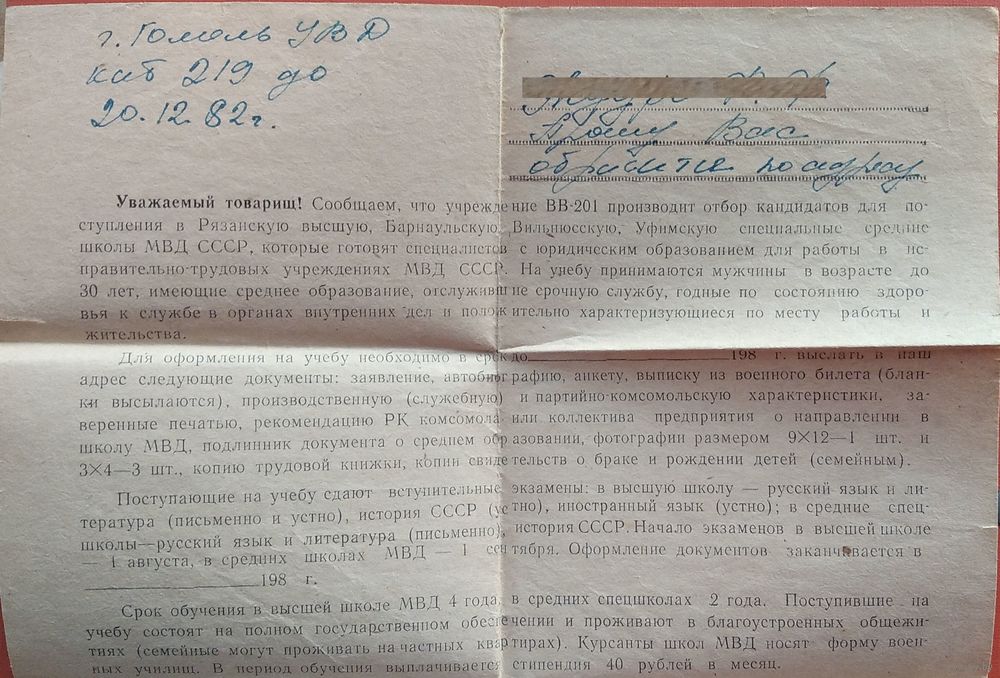 г. Гомель УВД
каб 219 до
20.12.82г.
Прошу Вас
обратится по адресу
Уважаемый товарищ! Сообщаем, что учреждение ВВ-201 производит отбор кандидатов для по-
ступления в Рязанскую высшую, Барнаульскую, Вильнюсскую, Уфимскую специальные средние
школы МВД СССР, которые готовят специалистов с юридическим образованием для работы в ис-
правительно-трудовых учреждениях МВД СССР. На учебу принимаются мужчины в возрасте до
30 лет, имеющие среднее образование, отслужившие срочную службу, годные по состоянию здоро-
вья к службе в органах внутренних дел и положительно характеризующиеся по месту работы и
жительства.
Для оформления на учебу необходимо в срок до 198 г. выслать в наш
адрес следующие документы: заявление, автобиографию, анкету, выписку из военного билета (блан-
ки высылаются), производственную (служебную) и партийно-комсомольскую характеристики, за-
веренные печатью, рекомендацию РК комсомола или коллектива предприятия о направлении в
школу МВД, подлинник документа о среднем образовании, фотографии размером 9×12—1 шт. и
3×4—3 шт., копию трудовой книжки, копии свидетельств о браке и рождении детей (семейным).
Поступающие на учебу сдают вступительные экзамены: в высшую школу — русский язык и ли-
тература (письменно и устно), история СССР (устно), иностранный язык (устно); в средние спец-
школы—русский язык и литература (письменно), история СССР. Начало экзаменов в высшей школе
— 1 августа, в средних школах МВД — 1 сентября. Оформление документов заканчивается в
198 г.
Срок обучения в высшей школе МВД 4 года, в средних спецшколах 2 года. Поступившие на
учебу состоят на полном государственном обеспечении и проживают в благоустроенных общежи-
тиях (семейные могут проживать на частных квартирах). Курсанты школ МВД носят форму воен-
ных училищ. В период обучения выплачивается стипендия 40 рублей в месяц.